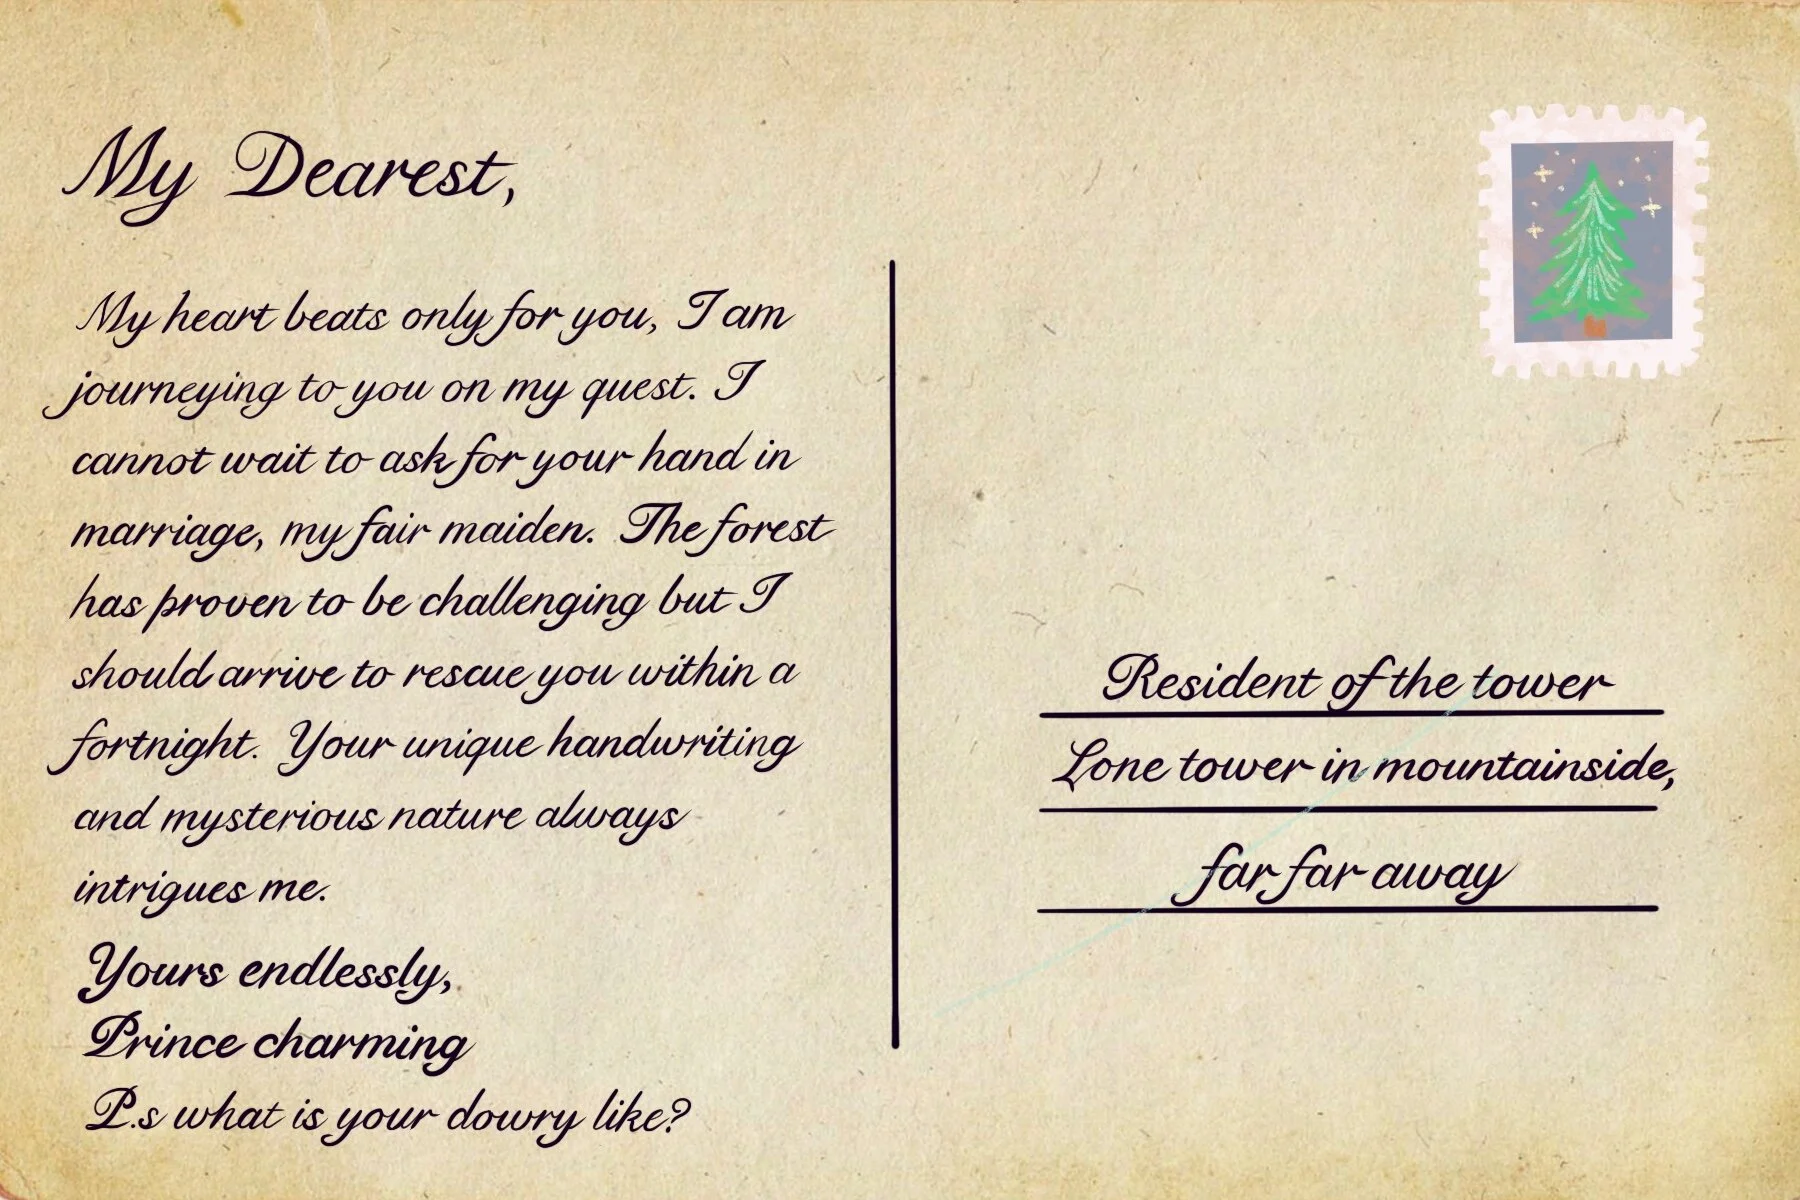 My Dearest,
My heart beats only for you, I am
journeying to you on my quest. I
cannot wait to ask for your hand in
marriage, my fair maiden. The forest
has proven to be challenging but I
should arrive to rescue you within a
fortnight. Your unique handwriting
and mysterious nature always
intrigues me.
Yours endlessly,
Prince charming
P.s what is your dowry like?
Resident of the tower
Lone tower in mountainside,
far far away